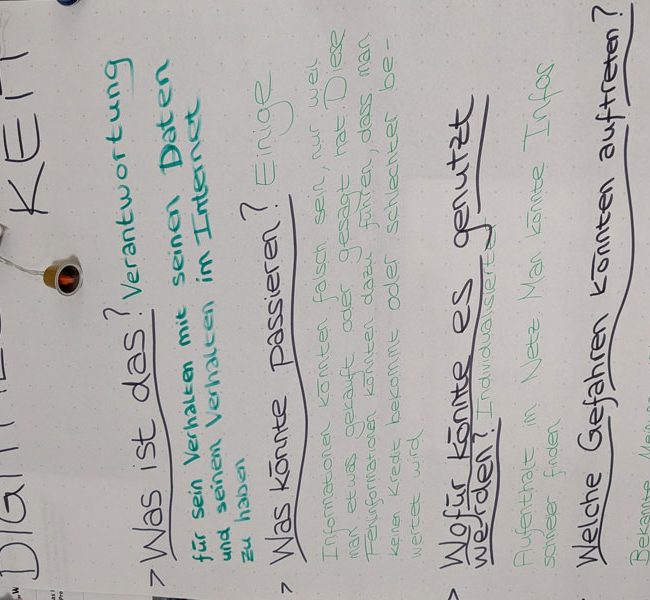 KEIT
> Was ist das? Verantwortung
für sein Verhalten mit seinen Daten
und seinem Verhalten im Internet
zu haben
> Was könnte passieren? Einige
Informationen könnten falsch sein, nur weil
man etwas gekauft oder gesagt hat. Diese
Fehlinformationen könnten dazu führen, dass man
keinen Kredit bekommt oder schlechter be-
wertet wird
> Wofür könnte es genutzt
werden? Individualisierter
Aufenthalt im Netz. Man könnte Infos
schneller finden
Welche Gefahren könnten auftreten?
Bekannte